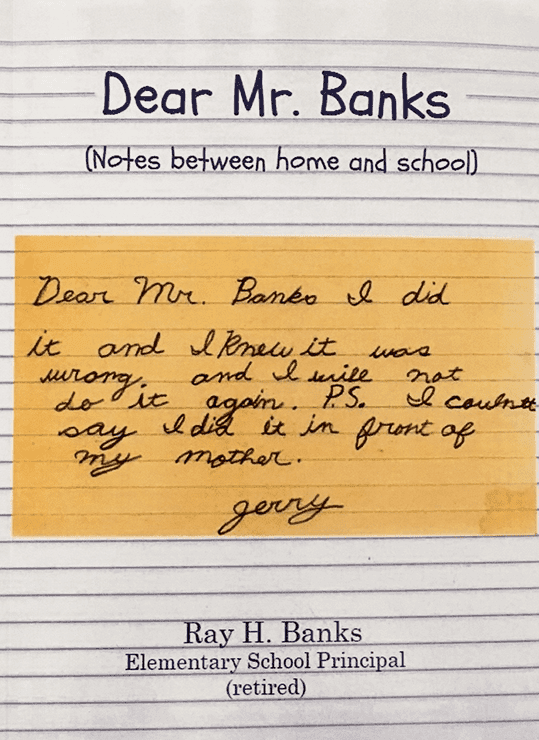 Dear Mr. Banks
(Notes between home and school)
Dear Mr. Banks I did
it and I knew it was
wrong. and I will not
do it again. P.S. I couldn't
say I did it in front of
my mother.
gerry
Ray H. Banks
Elementary School Principal
(retired)